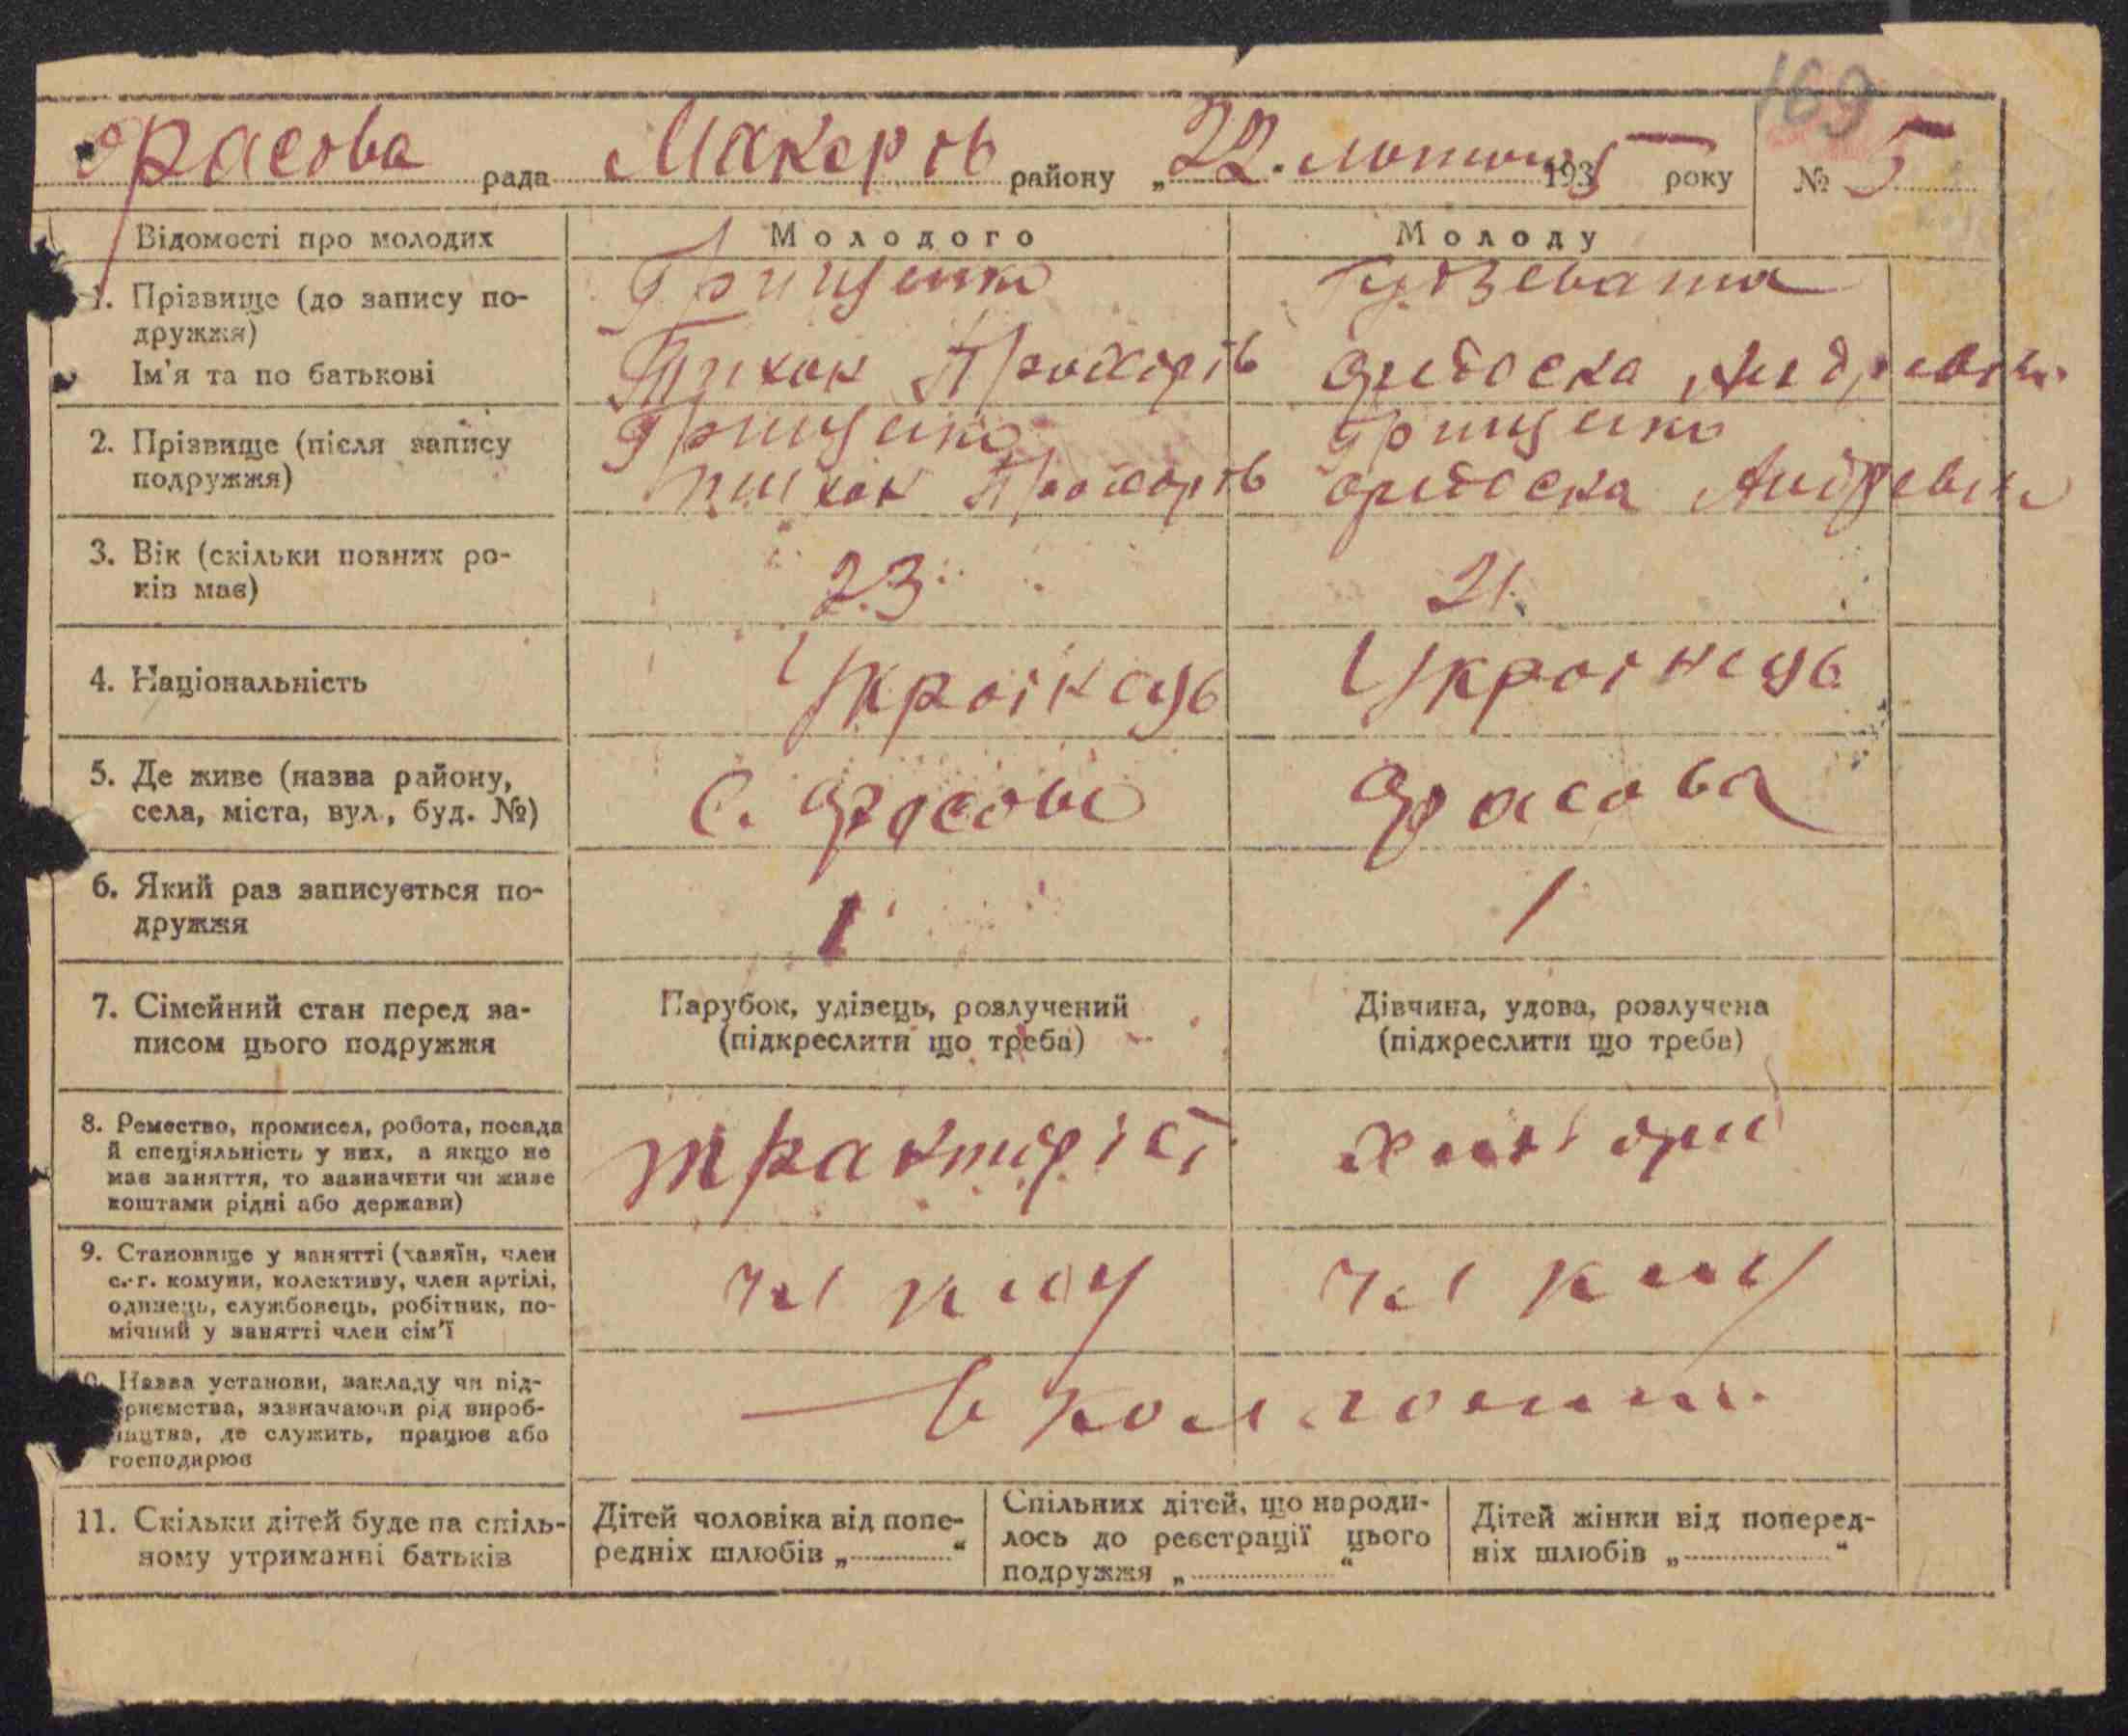 169
Фасова рада Макарів району „22. лютого 1935 року № 5
Відомості про молодих Молодого Молоду
1. Прізвище (до запису по-
дружжя)
Грищенко
Ім'я та по батькові
Тихон Прохорів Федоска
2. Прізвище (після запису
подружжя)
Грищенко Грищенко
Тихон Прохорів Федоска
3. Вік (скільки повних ро-
ків має)
23 21
4. Національність
Українець Українець
5. Де живе (назва району,
села, міста, вул., буд. №)
С. Фасова Фасова
6. Який раз записується по-
дружжя
1 1
7. Сімейний стан перед за-
писом цього подружжя
Парубок, удівець, розлучений
(підкреслити що треба)
Дівчина, удова, розлучена
(підкреслити що треба)
8. Ремество, промисел, робота, посада
й спеціяльність у них, а якщо не
має заняття, то зазначити чи живе
коштами рідні або держави)
тракторіст
9. Становище у занятті (хазяїн, член
с.-г. комуни, колективу, член артілі,
одинець, службовець, робітник, по-
мічний у занятті член сім'ї
10. Назва установи, закладу чи під-
приємства, зазначаючи рід вироб-
ництва, де служить, працює або
господарює
11. Скільки дітей буде на спіль-
ному утриманні батьків
Дітей чоловіка від попе-
редніх шлюбів „ “
Спільних дітей, що народи-
лось до реєстрації цього
подружжя „ “
Дітей жінки від поперед-
ніх шлюбів „ “